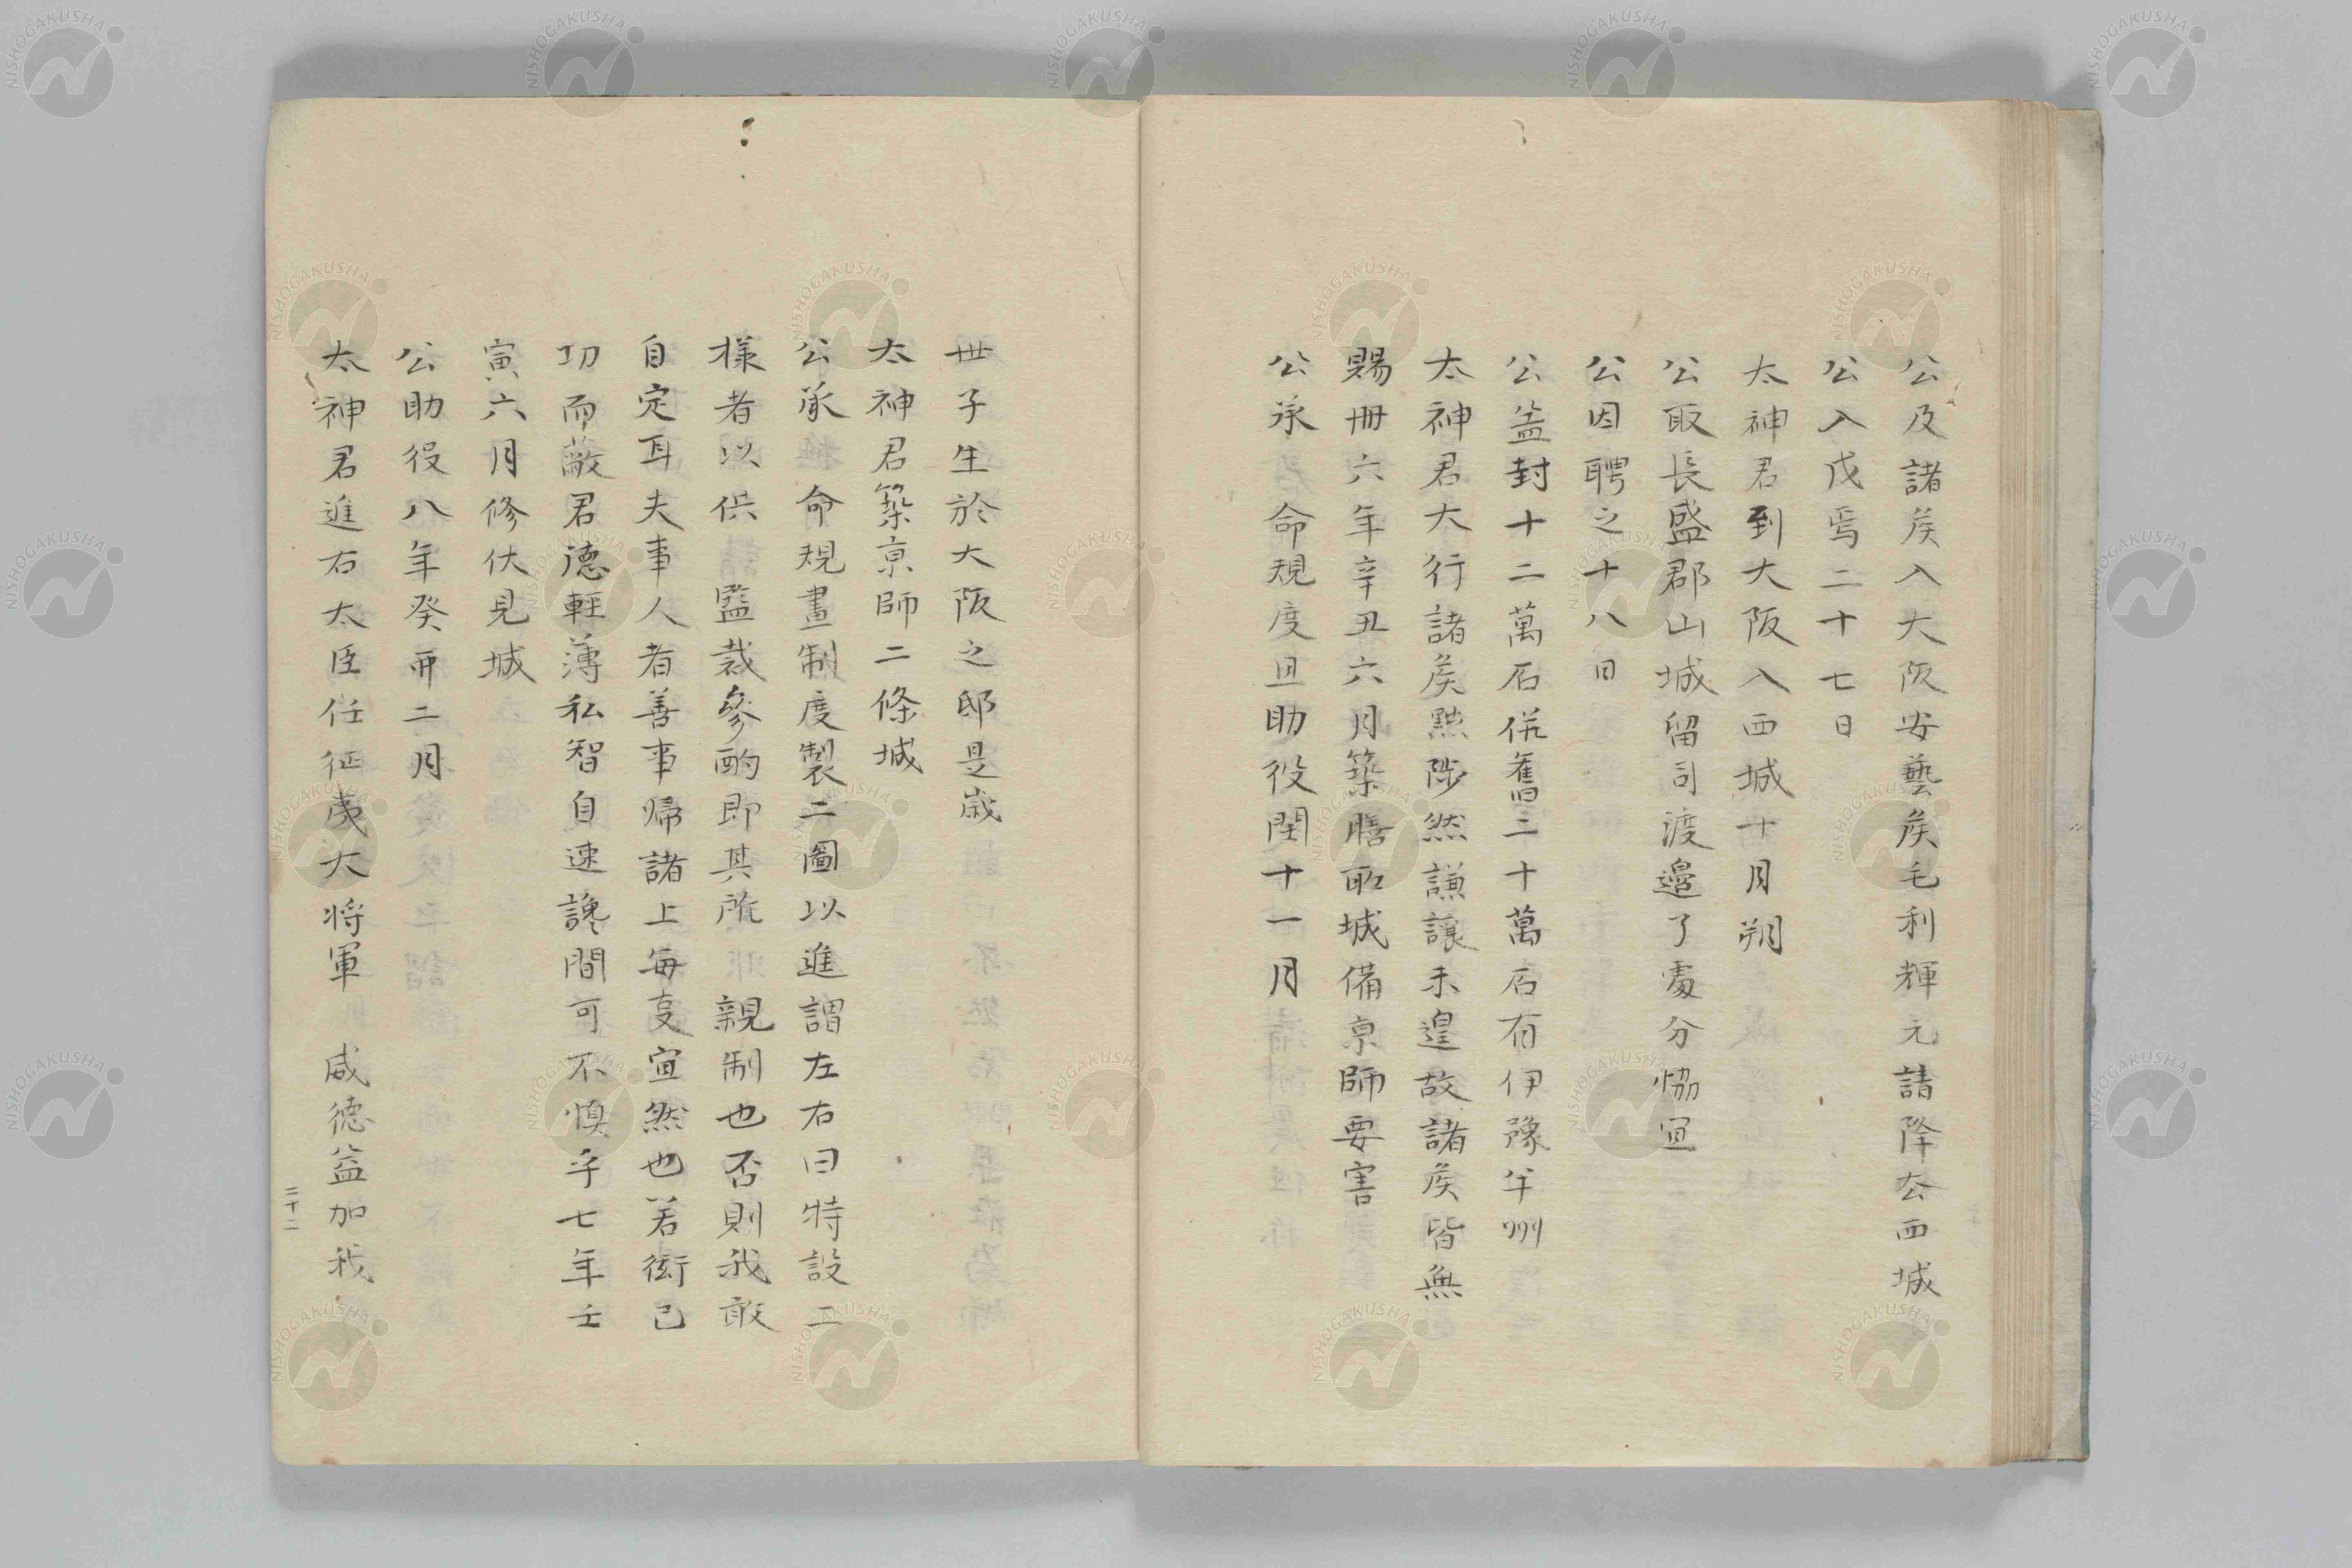 公及諸矦入大阪安藝矦毛利輝元請降去西城
公入戍焉二十七日
太神君到大阪入西城十月朔
公取長盛郡山城留司渡邉了處分恊宜
公因聘之十八日
公益封十二萬石併舊二十萬石有伊豫半州
太神君大行諸矦黜陟然謙讓未遑故諸矦皆無
賜冊六年辛丑六月築膳所城備亰師要害
公承 命規度且助役閏十一月
世子生於大阪之邸是歳
太神君築亰師二條城
公承 命規畫制度製二圖以進謂左右曰特設二
様者以供 監裁參酌即其所 親制也否則我敢
自定耳夫事人者善事帰諸上毎叓宜然也若衒己
功而蔽君德輕薄私智自速讒間可不愼乎七年壬
寅六月修伏見城
公助役八年癸卯二月
太神君進右大臣任征夷大将軍 威德益加我
二十二
NISHOGAKUSHA